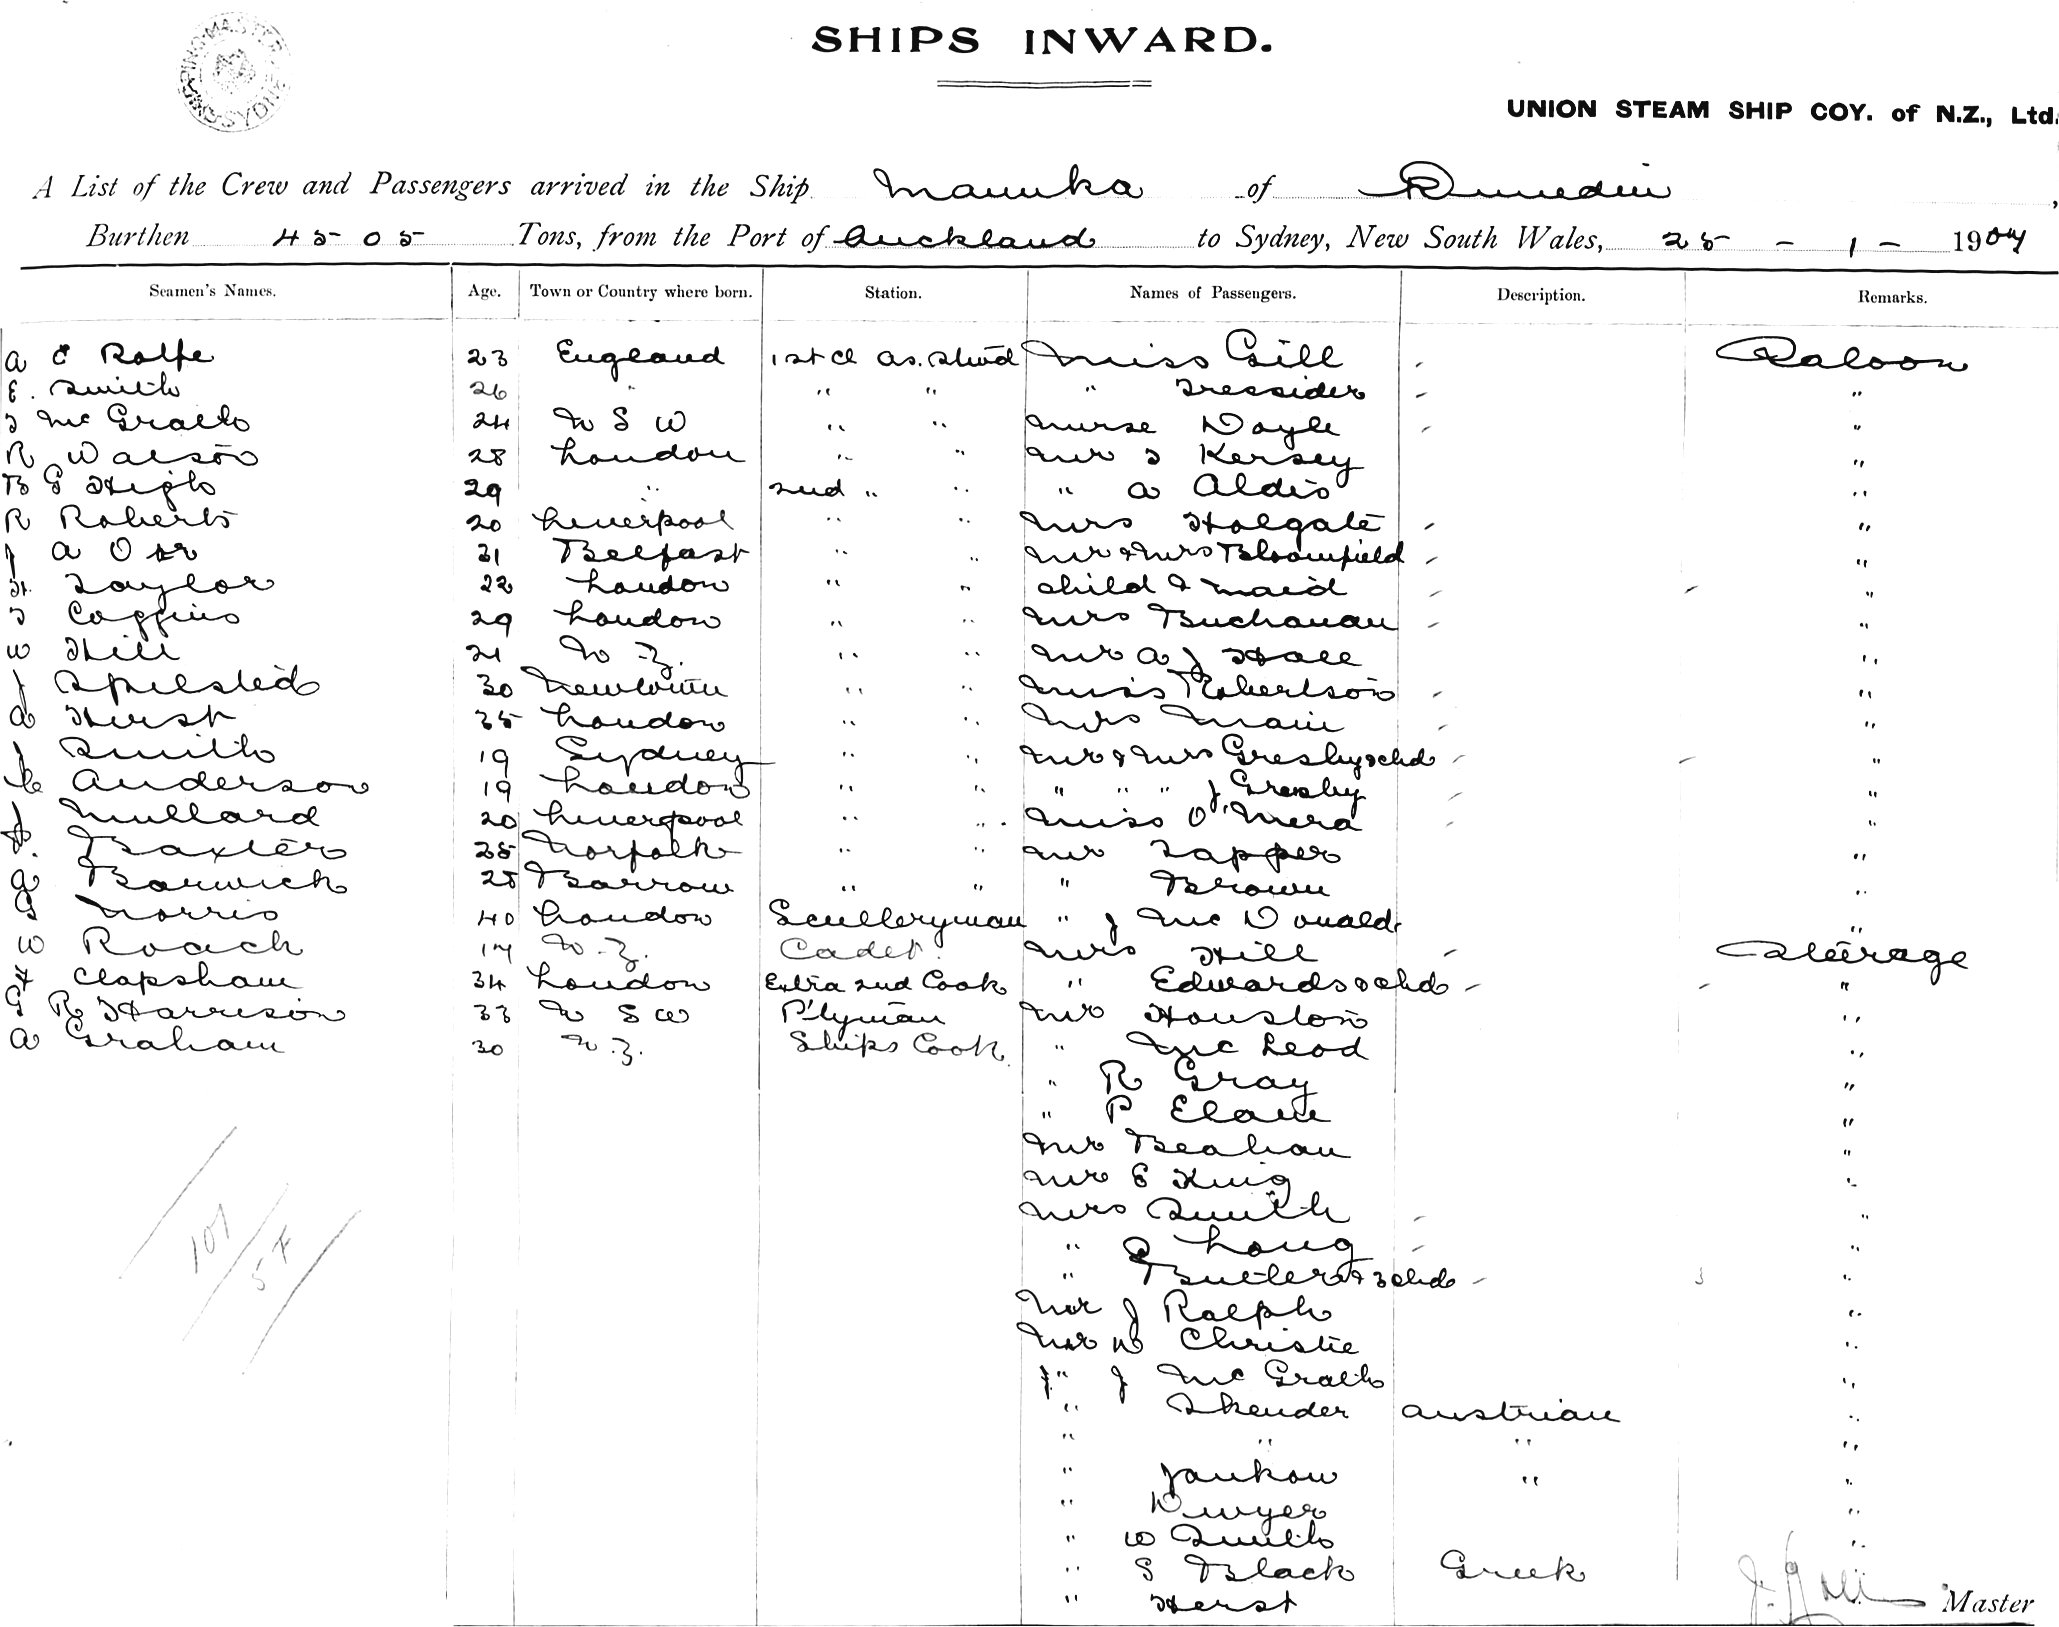 SHIPPING MASTER SYDNEY
SHIPS INWARD.
UNION STEAM SHIP COY. of N.Z., Ltd.
A List of the Crew and Passengers arrived in the Ship Manuka of Dunedin,
Burthen 4505 Tons, from the Port of Auckland to Sydney, New South Wales, 25 - 1 - 1904
Seamen's Names. Age. Town or Country where born. Station. Names of Passengers. Description. Remarks.
A E Rolfe 23 England 1st Cl As. Stwd Miss Gill Saloon
E. Smith 26 " " " " Tressider "
T McGrath 24 N S W " " Nurse Doyle "
R Watson 28 London " " Mr T Kersey "
B G High 29 " 2nd " " " A Aldis "
R Roberts 20 Liverpool " " Mrs Holgate "
J A Orr 31 Belfast " " Mr & Mrs Bloomfield "
H. Taylor 22 London " " child & maid "
T Coggins 29 London " " Mrs Buchanan "
W Hill 21 N.Z. " " Mr A J Hall "
J Spilsted 30 " " Miss Robertson "
A Hirst 35 London " " Mrs Main "
J Smith 19 Sydney " " Mr & Mrs Gresby & chd "
C Anderson 19 London " " " " " J Gresby "
J Mullard 20 Liverpool " " Miss O'Mera "
Baxter 25 Norfolk " " Mr Tapper "
G Barwick 25 Barrow " " " Brown "
G Norris 40 London Sculleryman " J McDonald "
W Roach 17 N.Z. Cadet. Mrs Hill Steerage
H Clapsham 34 London Extra 2nd Cook " Edwards & chd "
G R Harrison 33 N S W P'tyman Mr Houston "
A Graham 30 N.Z. Ships Cook " McLeod "
" R Gray "
" P Elam "
Mr Beahan "
Mr E King "
Mrs Smith "
" Long "
" Butler & 3 chd 3 "
Mr J Ralph "
Mr W Christie "
" J McGrath "
" Skender Austrian "
" " " "
" Jankow " "
" Dwyer "
" W Smith "
" S Black Greek "
" Herst
107
57
Master